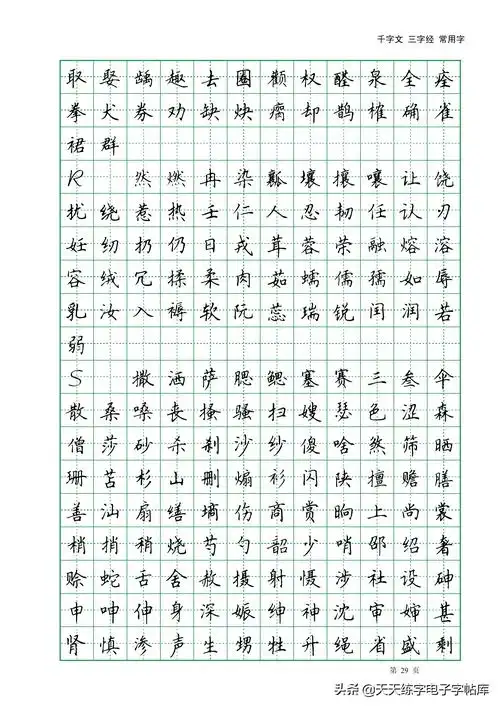 千字文 三字经 常用字
取 娶 龋 趣 去 圈 颧 权 醛 泉 全 痊
拳 犬 券 劝 缺 炔 瘸 却 鹊 榷 确 雀
裙 群
R 然 燃 冉 染 瓤 壤 攘 嚷 让 饶
扰 绕 惹 热 壬 仁 人 忍 韧 任 认 刃
妊 纫 扔 仍 日 戎 茸 蓉 荣 融 熔 溶
容 绒 冗 揉 柔 肉 茹 蠕 儒 孺 如 辱
乳 汝 入 褥 软 阮 蕊 瑞 锐 闰 润 若
弱
S 撒 洒 萨 腮 鳃 塞 赛 三 叁 伞
散 桑 嗓 丧 搔 骚 扫 嫂 瑟 色 涩 森
僧 莎 砂 杀 刹 沙 纱 傻 啥 煞 筛 晒
珊 苫 杉 山 删 煽 衫 闪 陕 擅 赡 膳
善 汕 扇 缮 墒 伤 商 赏 晌 上 尚 裳
梢 捎 稍 烧 芍 勺 韶 少 哨 邵 绍 奢
赊 蛇 舌 舍 赦 摄 射 慑 涉 社 设 砷
申 呻 伸 身 深 娠 绅 神 沈 审 婶 甚
肾 慎 渗 声 生 甥 牲 升 绳 省 盛 剩
第 29 页
头条 @天天练字电子字帖库